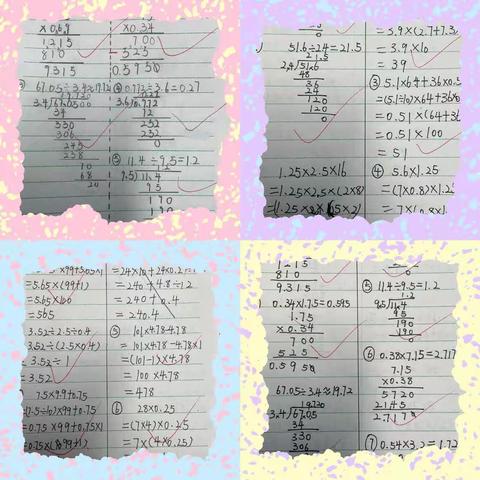 ×0.69
1215
810
9.315
67.05÷3.4≈19.72
3.4/67.0500
34
330
306
245
238
10
68
×0.34
700
525
0.5950
④ 0.972÷3.6=0.27
3.6/0.972
72
252
252
0
⑤ 11.4÷9.5=1.2
9.5/11.4
95
190
190
51.6÷24=21.5
21.5
2.4/51.6
48
36
24
120
120
0
1.25×2.5×16
=1.25×2.5×(2×8)
=5.9×(2.7+7.3
=3.9×10
=39
③ 5.1×64+36×0.5
=0.51×(64+36
=0.51×100
=51
④ 5.6×1.25
=(7×0.8)×1.2
=5.65×(99+1)
=5.65×100
=565
3.52÷2.5÷0.4
=3.52÷(2.5×0.4)
=3.52÷1
=3.52
7.5×9.9+0.75
=0.75×99+0.75×1
=24×10+24×0.2
=240+4.8÷1.2
=240+0.4
=240.4
⑤ 101×4.78-4.78
=101×4.78-4.78×1
=(101-1)×4.78
=100×4.78
=478
⑥ 28×0.25
=(7×4)×0.25
=7×(4×0.25)
1215
810
9.315
0.34×1.75=0.595
1.75
×0.34
700
525
0.5950
67.05÷3.4≈19.72
3.4/67.05
34
330
306
⑤ 11.4÷9.5=1.2
1.2
9.5/11.4
95
190
190
0
⑥ 0.38×7.15=2.717
7.15
×0.38
5720
2145
2.7170
⑦ 0.54×3.2=1.72